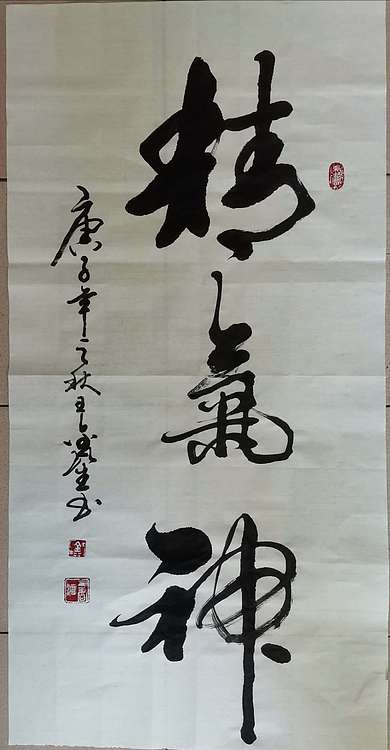 精氣神
庚子年之秋王
书